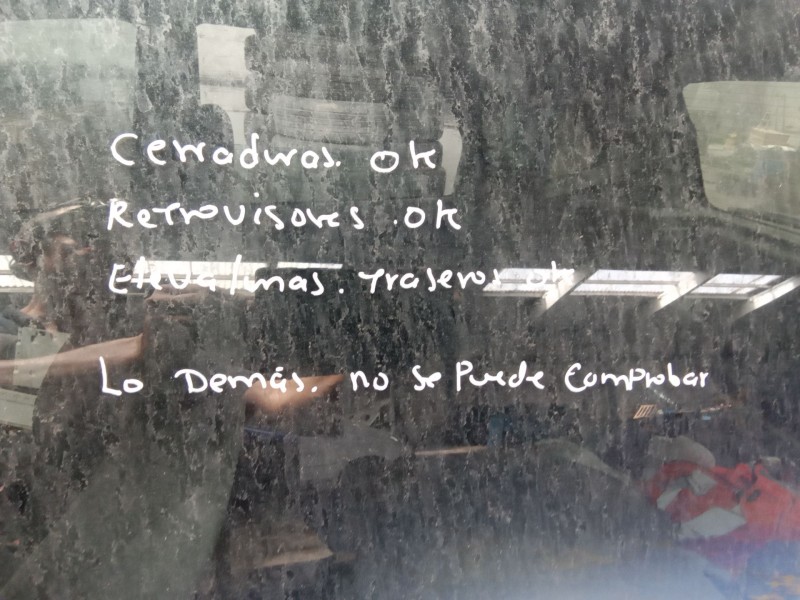 Cerraduras. ok
Retrovisores .ok
Elevalunas. traseros ok
Lo Demás. no se Puede Comprobar